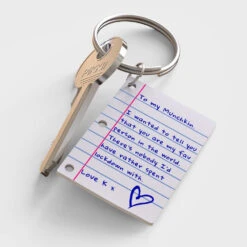 To my Munchkin
I wanted to tell you
that you are my fav
person in the world.
There's nobody I'd
have rather spent
lockdown with
Love K x